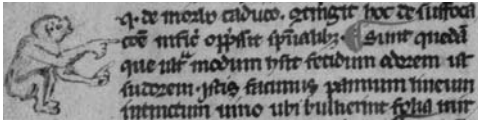 q. de morbo caduco. ꝯtingit hoc de suffoca
cōe mĩc̄ opp̃sit sp̃ualiƀꝫ ¶ Sunt quedã
que ult̃ modum hñt fetidum odorem ut
sudorem. istis facimus pannum lineum
intinctum uino ubi bulierint folia mir